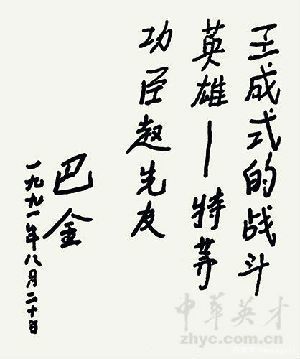 王成式的战斗
英雄—特等
功臣赵先友
巴金
一九九一年八月二十日
中华英才
zhyc.com.cn